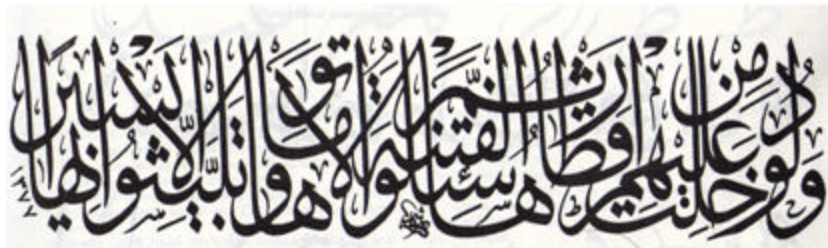 وَلَوْ دُخِلَتْ عَلَيْهِم مِّنْ أَقْطَارِهَا ثُمَّ سُئِلُوا الْفِتْنَةَ لَآتَوْهَا وَمَا تَلَبَّثُوا بِهَا إِلَّا يَسِيرًا